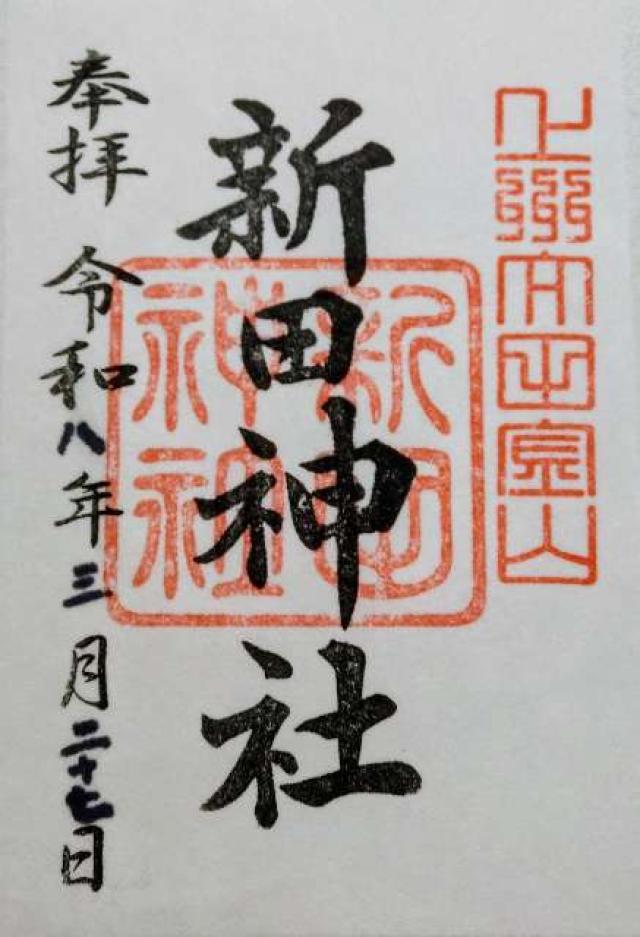 上州太田金山
新田神社
新田
神社
奉拝 令和八年三月二十七日